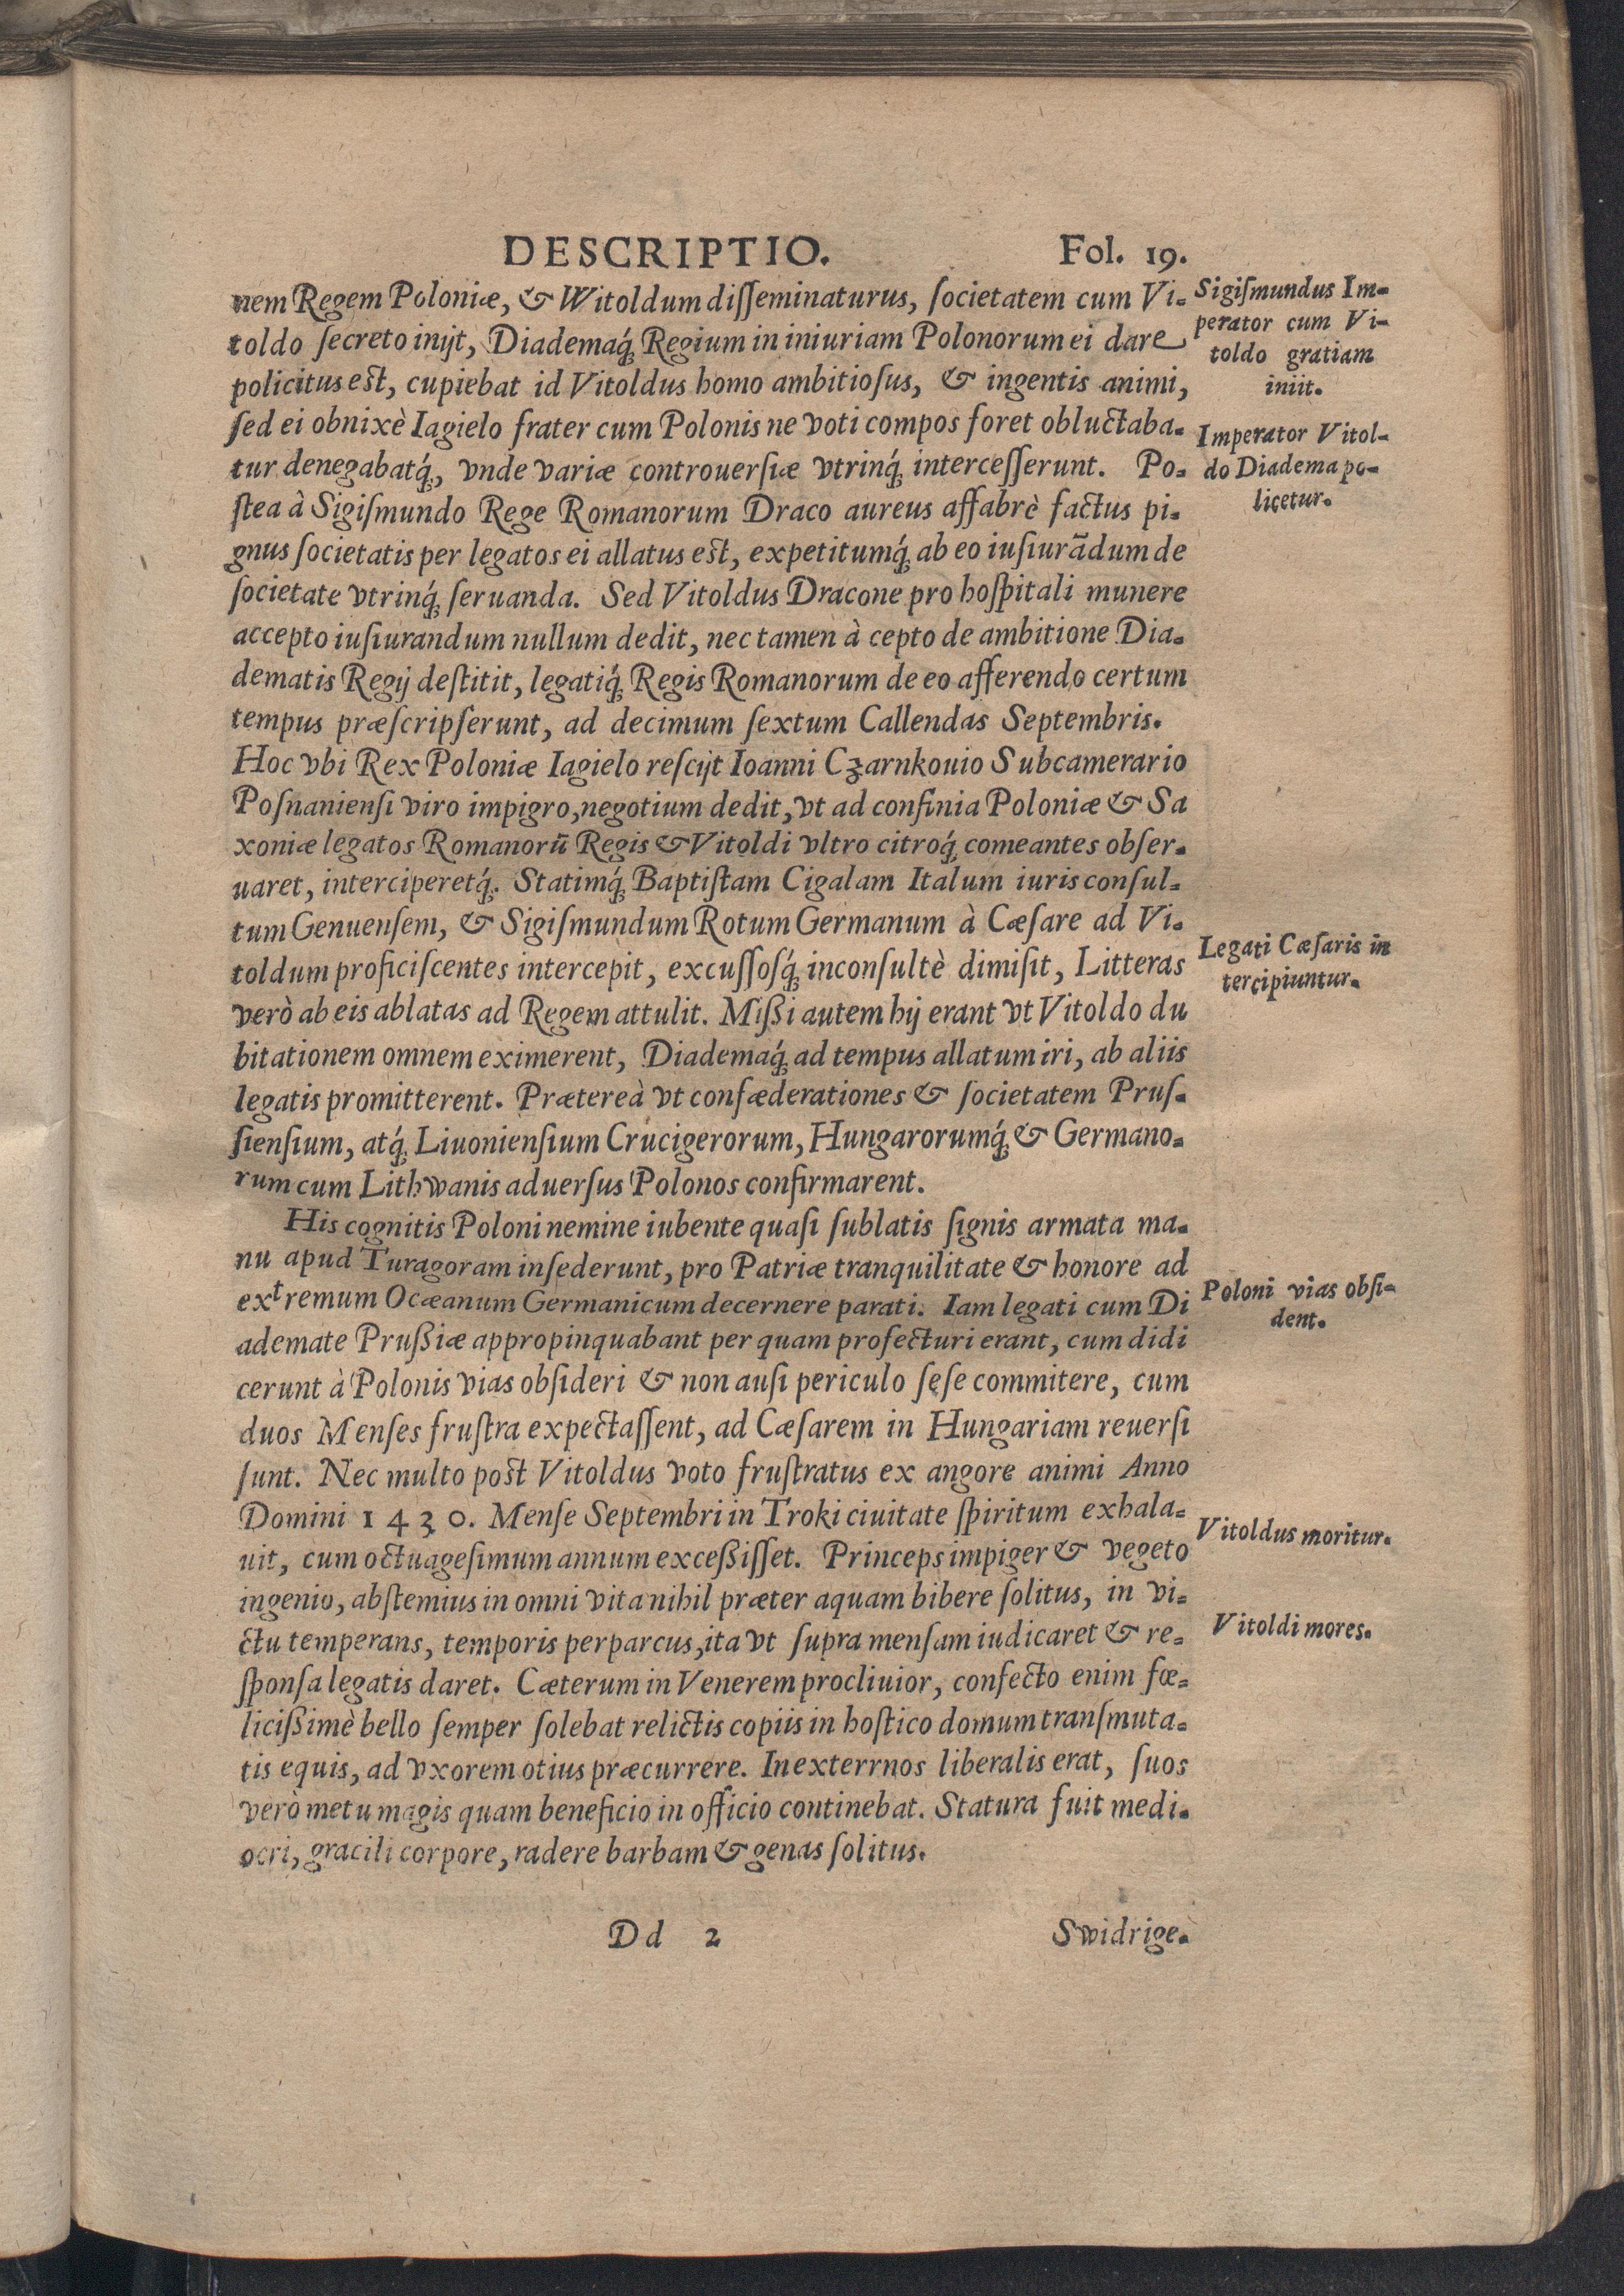 DESCRIPTIO. Fol. 19.
nem Regem Poloniæ, & Witoldum diſſeminaturus, ſocietatem cum Vi-
toldo ſecreto inijt, Diademaq́; Regium in iniuriam Polonorum ei dare
policitus est, cupiebat id Vitoldus homo ambitioſus, & ingentis animi,
ſed ei obnixè Iagielo frater cum Polonis ne voti compos foret obluctaba-
tur denegabatq́;, vnde variæ controuerſiæ vtrinq́; interceſſerunt. Po-
ſtea à Sigiſmundo Rege Romanorum Draco aureus affabrè factus pi-
gnus ſocietatis per legatos ei allatus est, expetitumq́; ab eo iuſiurãdum de
ſocietate vtrinq́; ſeruanda. Sed Vitoldus Dracone pro hoſpitali munere
accepto iuſiurandum nullum dedit, nec tamen à cepto de ambitione Dia-
dematis Regij deſtitit, legatiq́; Regis Romanorum de eo afferendo certum
tempus præſcripſerunt, ad decimum ſextum Callendas Septembris.
Hoc vbi Rex Poloniæ Iagielo reſcijt Ioanni Czarnkouio Subcamerario
Poſnanienſi viro impigro, negotium dedit, vt ad confinia Poloniæ & Sa
xoniæ legatos Romanorũ Regis & Vitoldi vltro citroq́; comeantes obſer-
uaret, interciperetq́;. Statimq́; Baptiſtam Cigalam Italum iuris conſul-
tum Genuenſem, & Sigiſmundum Rotum Germanum à Cæſare ad Vi-
toldum proficiſcentes intercepit, excuſſoſq́; inconſultè dimiſit, Litteras
verò ab eis ablatas ad Regem attulit. Miſſi autem hij erant vt Vitoldo du
bitationem omnem eximerent, Diademaq́; ad tempus allatum iri, ab aliis
legatis promitterent. Prætereà vt confæderationes & ſocietatem Pruſ-
ſienſium, atq́; Liuonienſium Crucigerorum, Hungarorumq́; & Germano-
rum cum Lithwanis aduerſus Polonos confirmarent.
His cognitis Poloni nemine iubente quaſi ſublatis ſignis armata ma-
nu apud Turagoram inſederunt, pro Patriæ tranquilitate & honore ad
extremum Ocæanum Germanicum decernere parati. Iam legati cum Di
ademate Pruſſiæ appropinquabant per quam profecturi erant, cum didi
cerunt à Polonis vias obſideri & non auſi periculo ſeſe commitere, cum
duos Menſes fruſtra expectaſſent, ad Cæſarem in Hungariam reuerſi
ſunt. Nec multo post Vitoldus voto fruſtratus ex angore animi Anno
Domini 1430. Menſe Septembri in Troki ciuitate ſpiritum exhala-
uit, cum octuageſimum annum exceſſiſſet. Princeps impiger & vegeto
ingenio, abſtemius in omni vita nihil præter aquam bibere ſolitus, in vi-
ctu temperans, temporis perparcus, ita vt ſupra menſam iudicaret & re-
ſponſa legatis daret. Cæterum in Venerem procliuior, confecto enim fœ-
liciſſimè bello ſemper ſolebat relictis copiis in hoſtico domum tranſmuta-
tis equis, ad vxorem otius præcurrere. In exterrnos liberalis erat, ſuos
verò metu magis quam beneficio in officio continebat. Statura fuit medi-
ocri, gracili corpore, radere barbam & genas ſolitus.
Dd 2 Swidrige-
Sigiſmundus Im-
perator cum Vi-
toldo gratiam
iniit.
Imperator Vitol-
do Diadema po-
licetur.
Legati Cæſaris in
tercipiuntur.
Poloni vias obſi-
dent.
Vitoldus moritur.
Vitoldi mores.